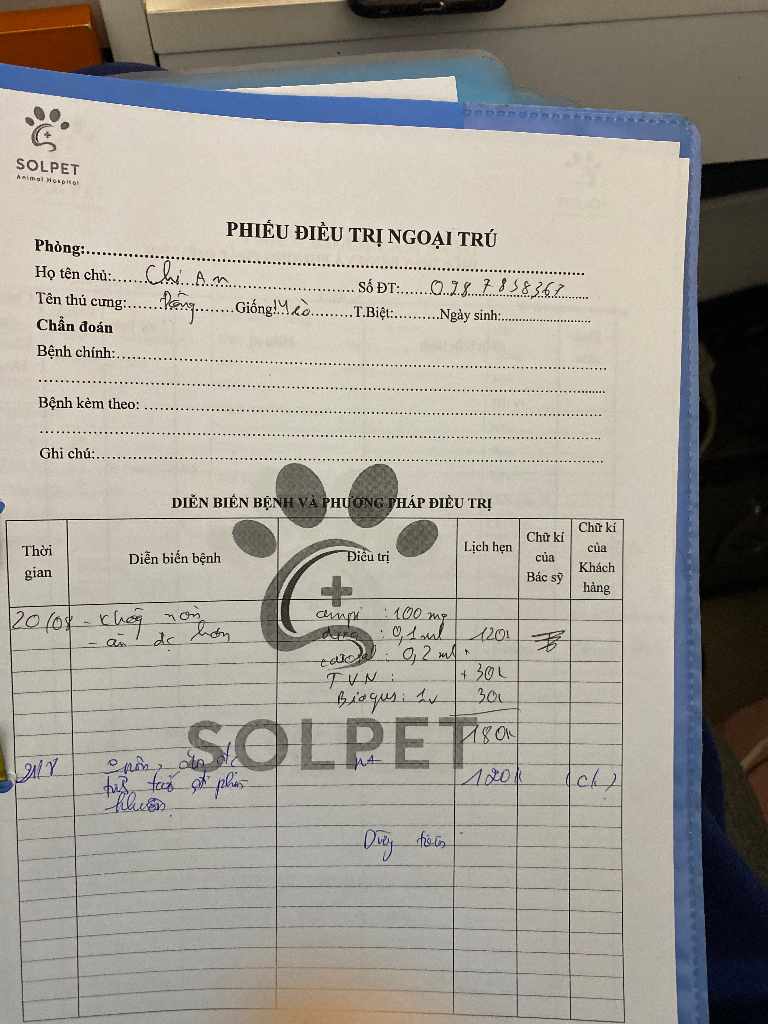 SOLPET
Animal Hospital
PHIẾU ĐIỀU TRỊ NGOẠI TRÚ
Phòng:
Họ tên chủ: Chị An Số ĐT:
Tên thú cưng: Giống: Mèo T.Biệt: Ngày sinh:
Chẩn đoán
Bệnh chính:
Bệnh kèm theo:
Ghi chú:
DIỄN BIẾN BỆNH VÀ PHƯƠNG PHÁP ĐIỀU TRỊ
Thời gian Diễn biến bệnh Điều trị Lịch hẹn Chữ kí của Bác sỹ Chữ kí của Khách hàng
20/08 - không nôn ampi : 100 mg
- ăn đc hơn : 0,1 ml 120k
: 0,2 ml
TVN : + 30k
: 1v 30k
180k
SOLPET
21/8 o nôn, ăn đc nt 120k (ck)